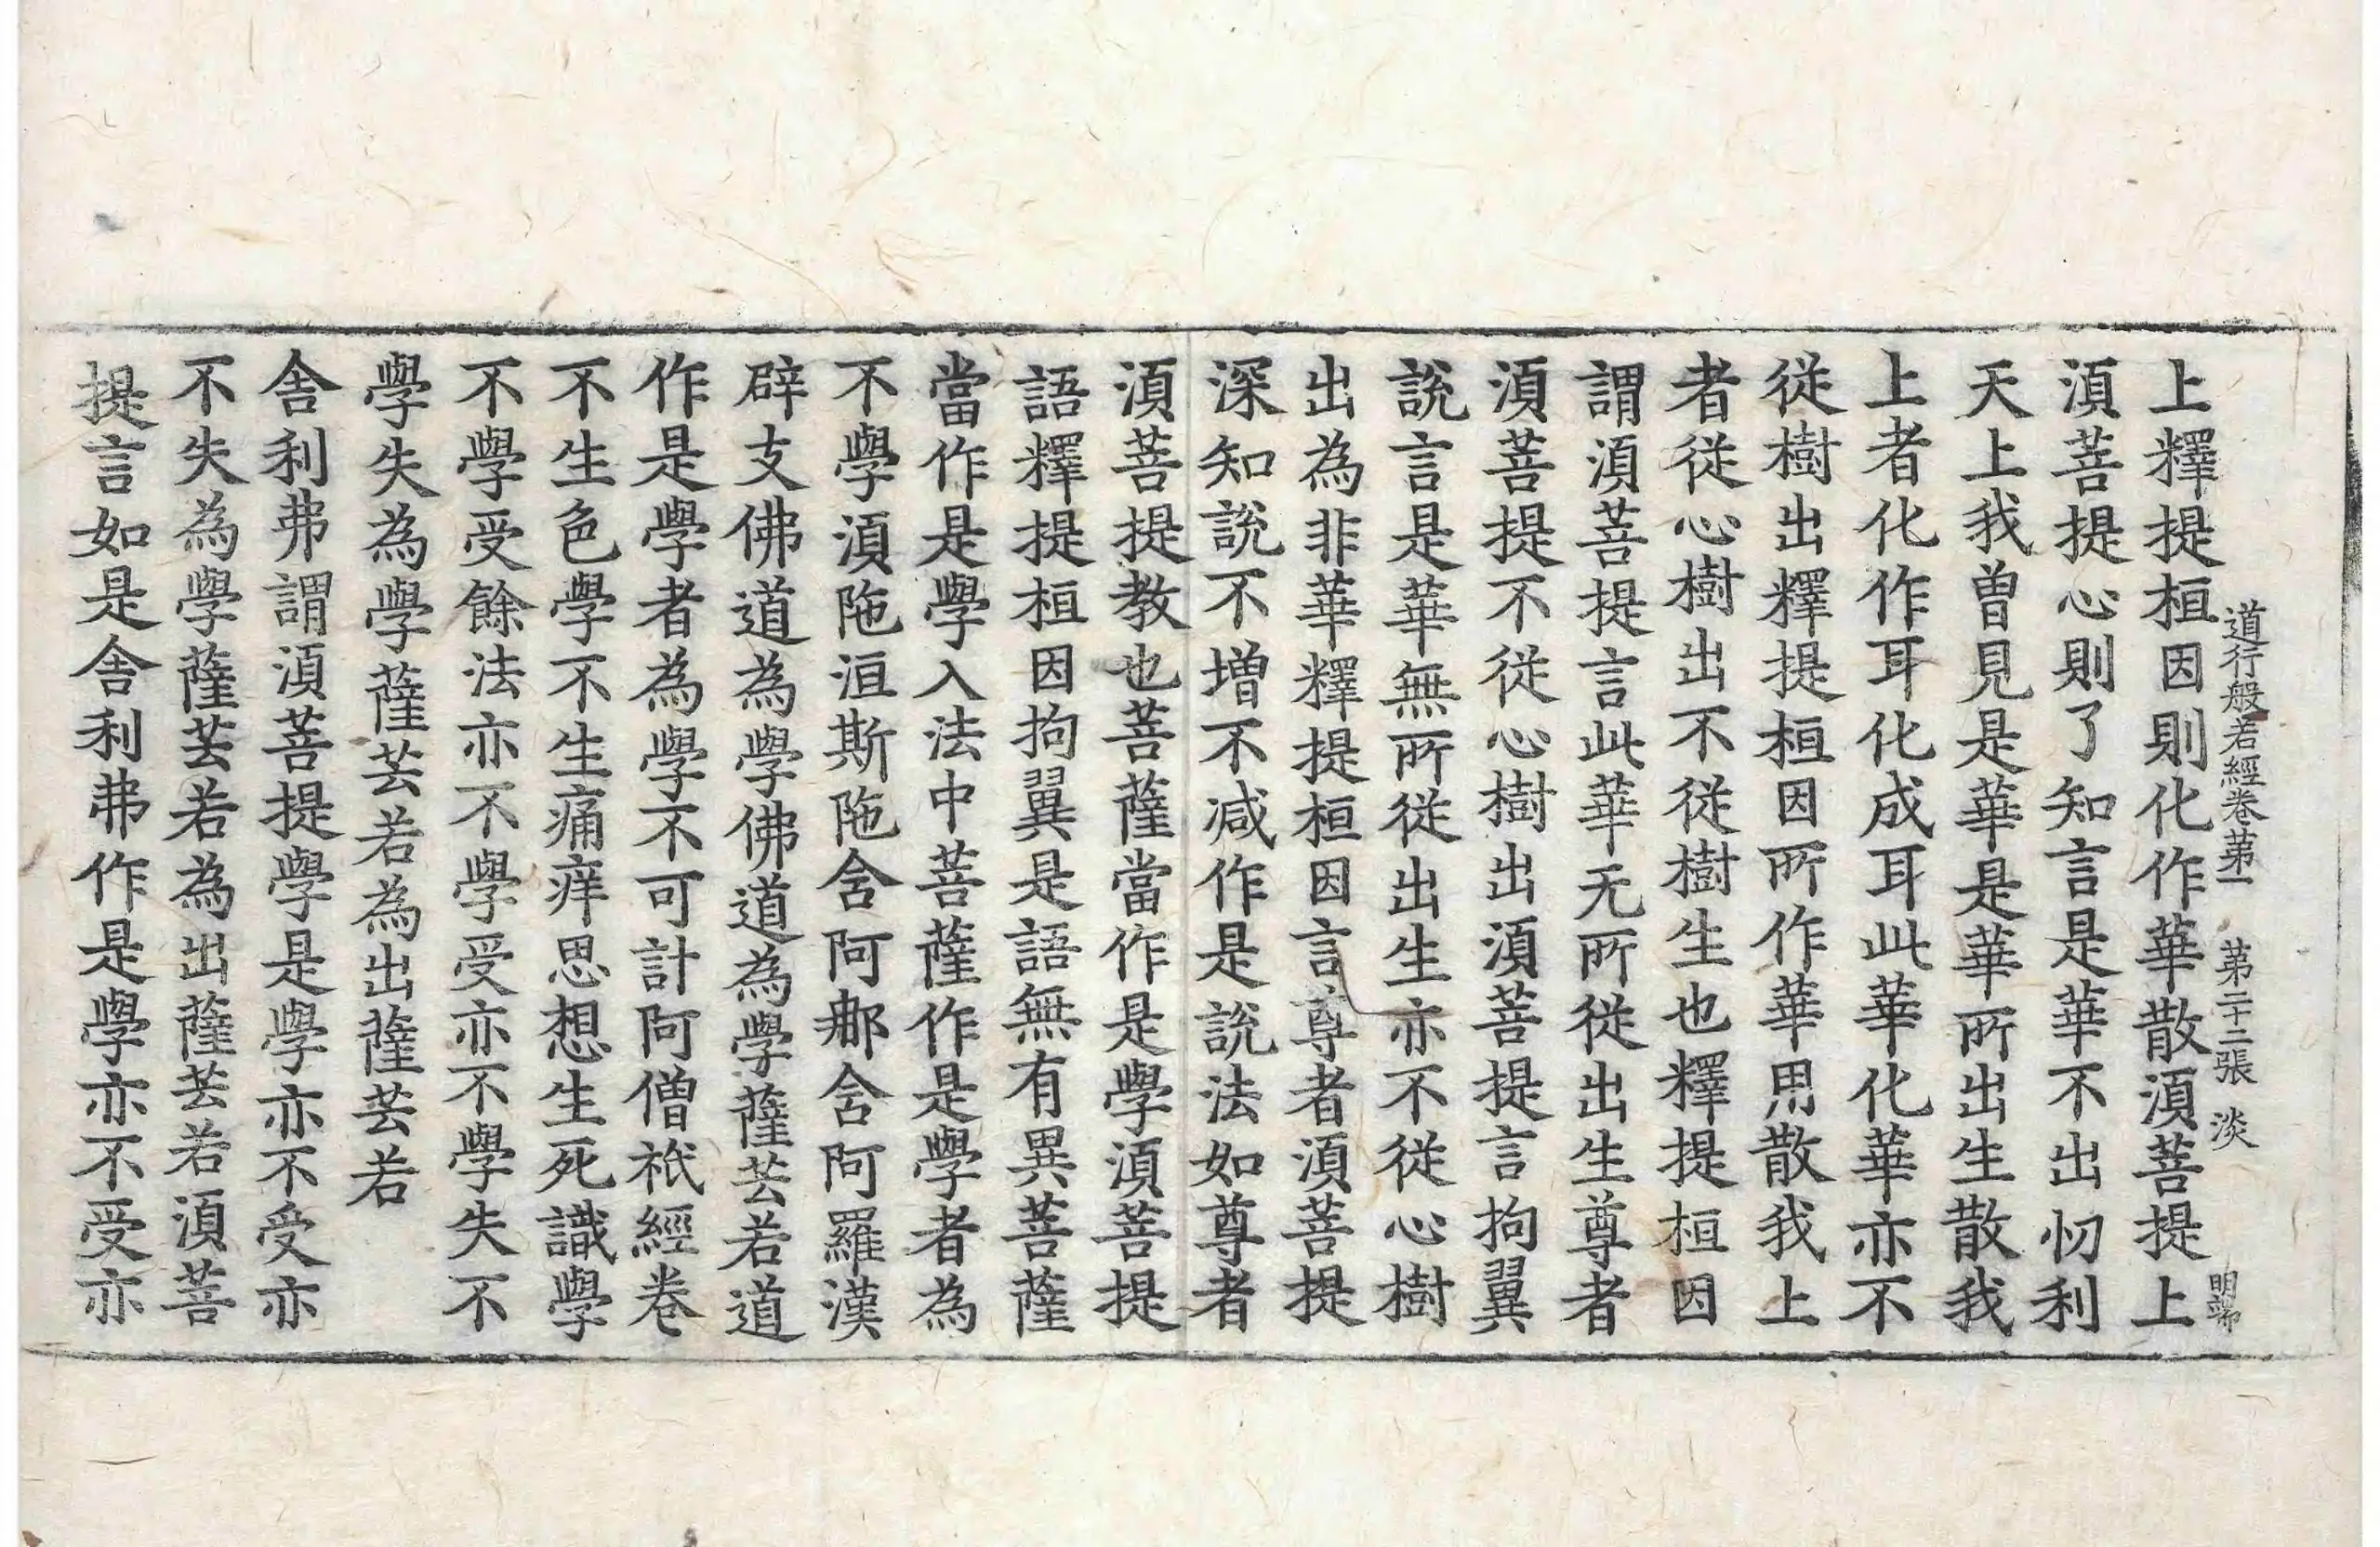 道行般若經卷第一 第二十二張 淡
上釋提桓因則化作華散湏菩提上
湏菩提心則了知言是華不出忉利
天上我曽見是華是華所出生散我
上者化作耳化成耳此華化華亦不
從樹出釋提桓因所作華用散我上
者從心樹出不從樹生也釋提桓因
謂湏菩提言此華无所從出生尊者
湏菩提不從心樹出湏菩提言拘翼
說言是華無所從出生亦不從心樹
出為非華釋提桓因言尊者湏菩提
深知說不增不減作是說法如尊者
湏菩提教也菩薩當作是學湏菩提
語釋提桓因拘翼是語無有異菩薩
當作是學入法中菩薩作是學者為
不學湏陁洹斯陁舍阿那舍阿羅漢
辟支佛道為學佛道為學薩芸若道
作是學者為學不可計阿僧祇經卷
不生色學不生痛痒思想生死識學
不學受餘法亦不學受亦不學失不
學失為學薩芸若為出薩芸若
舎利弗謂湏菩提學是學亦不受亦
不失為學薩芸若為出薩芸若湏菩
提言如是舎利弗作是學亦不受亦